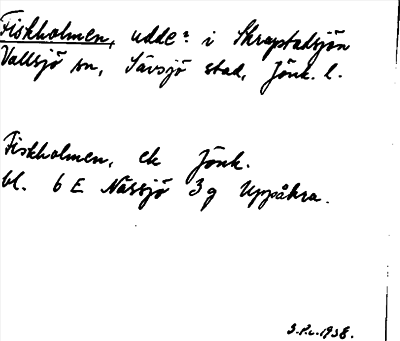 Fiskholmen, udde? i Skrapstadsjön
Vallsjö sn, Sävsjö stad, Jönk. l.
Fiskholmen, ek Jönk.
bl. 6 E Nässjö 3 g Uppåkra.
1938.